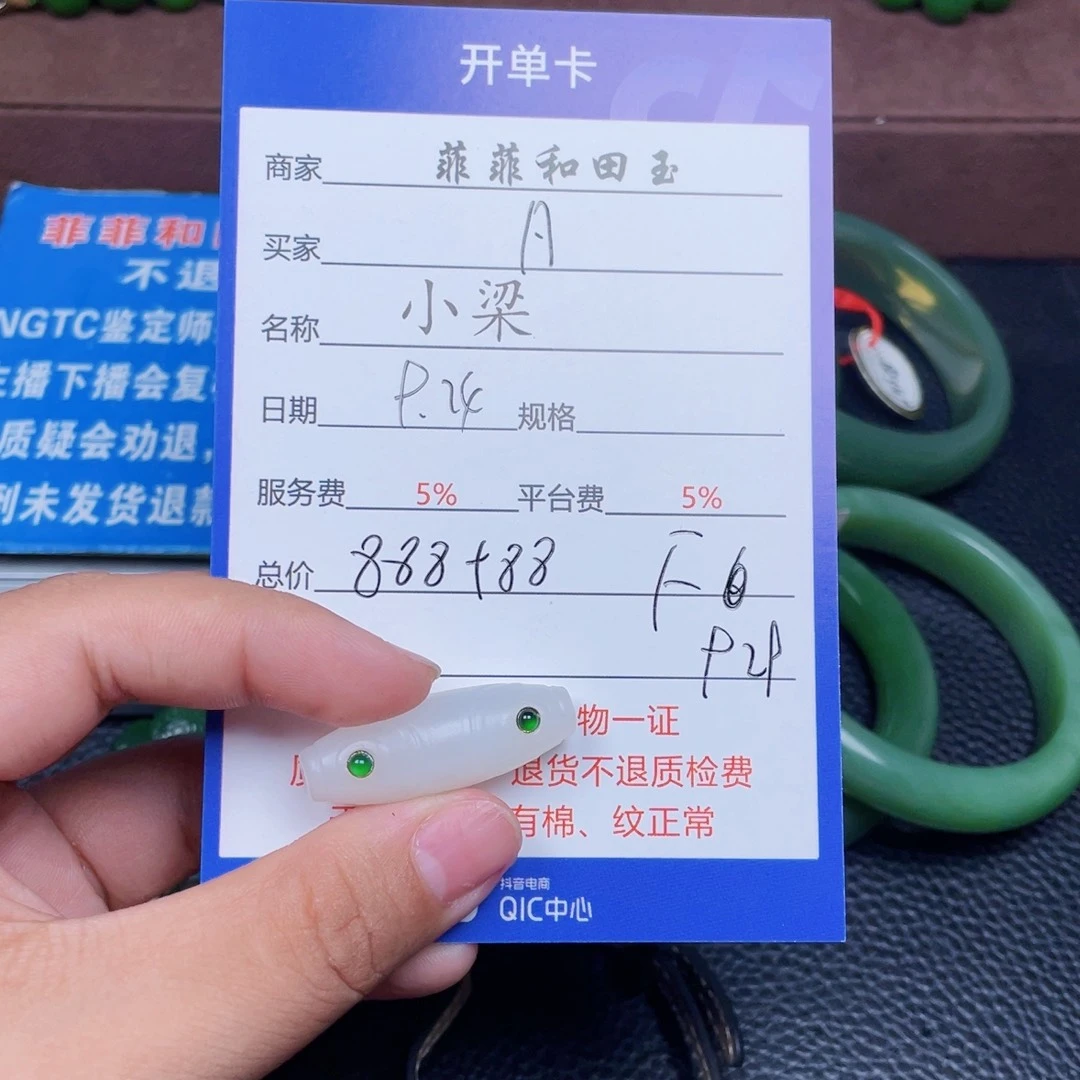 开单卡
商家 菲菲和田玉
买家 月
名称 小梁
日期 9.24 规格
服务费 5% 平台费 5%
总价 888+88
物一证
退货不退质检费
有棉、纹正常
抖音电商
QIC中心
菲菲和
不退
NGTC鉴定师
主播下播会复
质疑会劝退,
到未发货退款